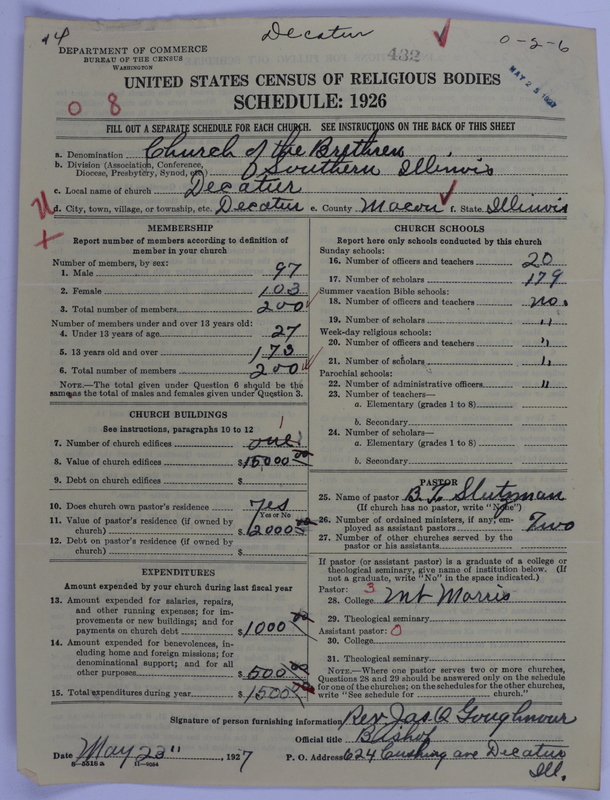 14 Decatur 0-2-6
DEPARTMENT OF COMMERCE
BUREAU OF THE CENSUS
WASHINGTON
432
MAY 25 1927
UNITED STATES CENSUS OF RELIGIOUS BODIES
SCHEDULE: 1926
0 8
FILL OUT A SEPARATE SCHEDULE FOR EACH CHURCH. SEE INSTRUCTIONS ON THE BACK OF THIS SHEET
a. Denomination Church of the Brethren
b. Division (Association, Conference, Diocese, Presbytery, Synod, etc.) Southern Illinois
c. Local name of church Decatur
d. City, town, village, or township, etc. Decatur e. County Macon f. State Illinois
MEMBERSHIP
Report number of members according to definition of
member in your church
Number of members, by sex:
1. Male 97
2. Female 103
3. Total number of members 200
Number of members under and over 13 years old:
4. Under 13 years of age 27
5. 13 years old and over 173
6. Total number of members 200
NOTE.—The total given under Question 6 should be the
same as the total of males and females given under Question 3.
CHURCH BUILDINGS
See instructions, paragraphs 10 to 12
7. Number of church edifices one 1
8. Value of church edifices $15000 00
9. Debt on church edifices $
10. Does church own pastor's residence Yes
Yes or No
11. Value of pastor's residence (if owned by
church) $2000 00
12. Debt on pastor's residence (if owned by
church) $
EXPENDITURES
Amount expended by your church during last fiscal year
13. Amount expended for salaries, repairs,
and other running expenses; for im-
provements or new buildings; and for
payments on church debt $1000 00
14. Amount expended for benevolences, in-
cluding home and foreign missions; for
denominational support; and for all
other purposes $500 00
15. Total expenditures during year $1500 00
CHURCH SCHOOLS
Report here only schools conducted by this church
Sunday schools:
16. Number of officers and teachers 20
17. Number of scholars 179
Summer vacation Bible schools:
18. Number of officers and teachers no.
19. Number of scholars "
Week-day religious schools:
20. Number of officers and teachers "
21. Number of scholars "
Parochial schools:
22. Number of administrative officers "
23. Number of teachers—
a. Elementary (grades 1 to 8)
b. Secondary
24. Number of scholars—
a. Elementary (grades 1 to 8)
b. Secondary
PASTOR
25. Name of pastor Slutzman
(If church has no pastor, write "None")
26. Number of ordained ministers, if any, em-
ployed as assistant pastors Two
27. Number of other churches served by the
pastor or his assistants
If pastor (or assistant pastor) is a graduate of a college or
theological seminary, give name of institution below. (If
not a graduate, write "No" in the space indicated.)
Pastor: 3
28. College Mt Morris
29. Theological seminary
Assistant pastor: 0
30. College
31. Theological seminary
NOTE.—Where one pastor serves two or more churches,
Questions 28 and 29 should be answered only on the schedule
for one of the churches; on the schedules for the other churches,
write "See schedule for ______ church."
Signature of person furnishing information Rev. Jas. O Goughnour
Official title Bishop
Date May 23", 1927 P. O. Address 624 Cushing ave Decatur
Ill.
8-5516a 11-9054